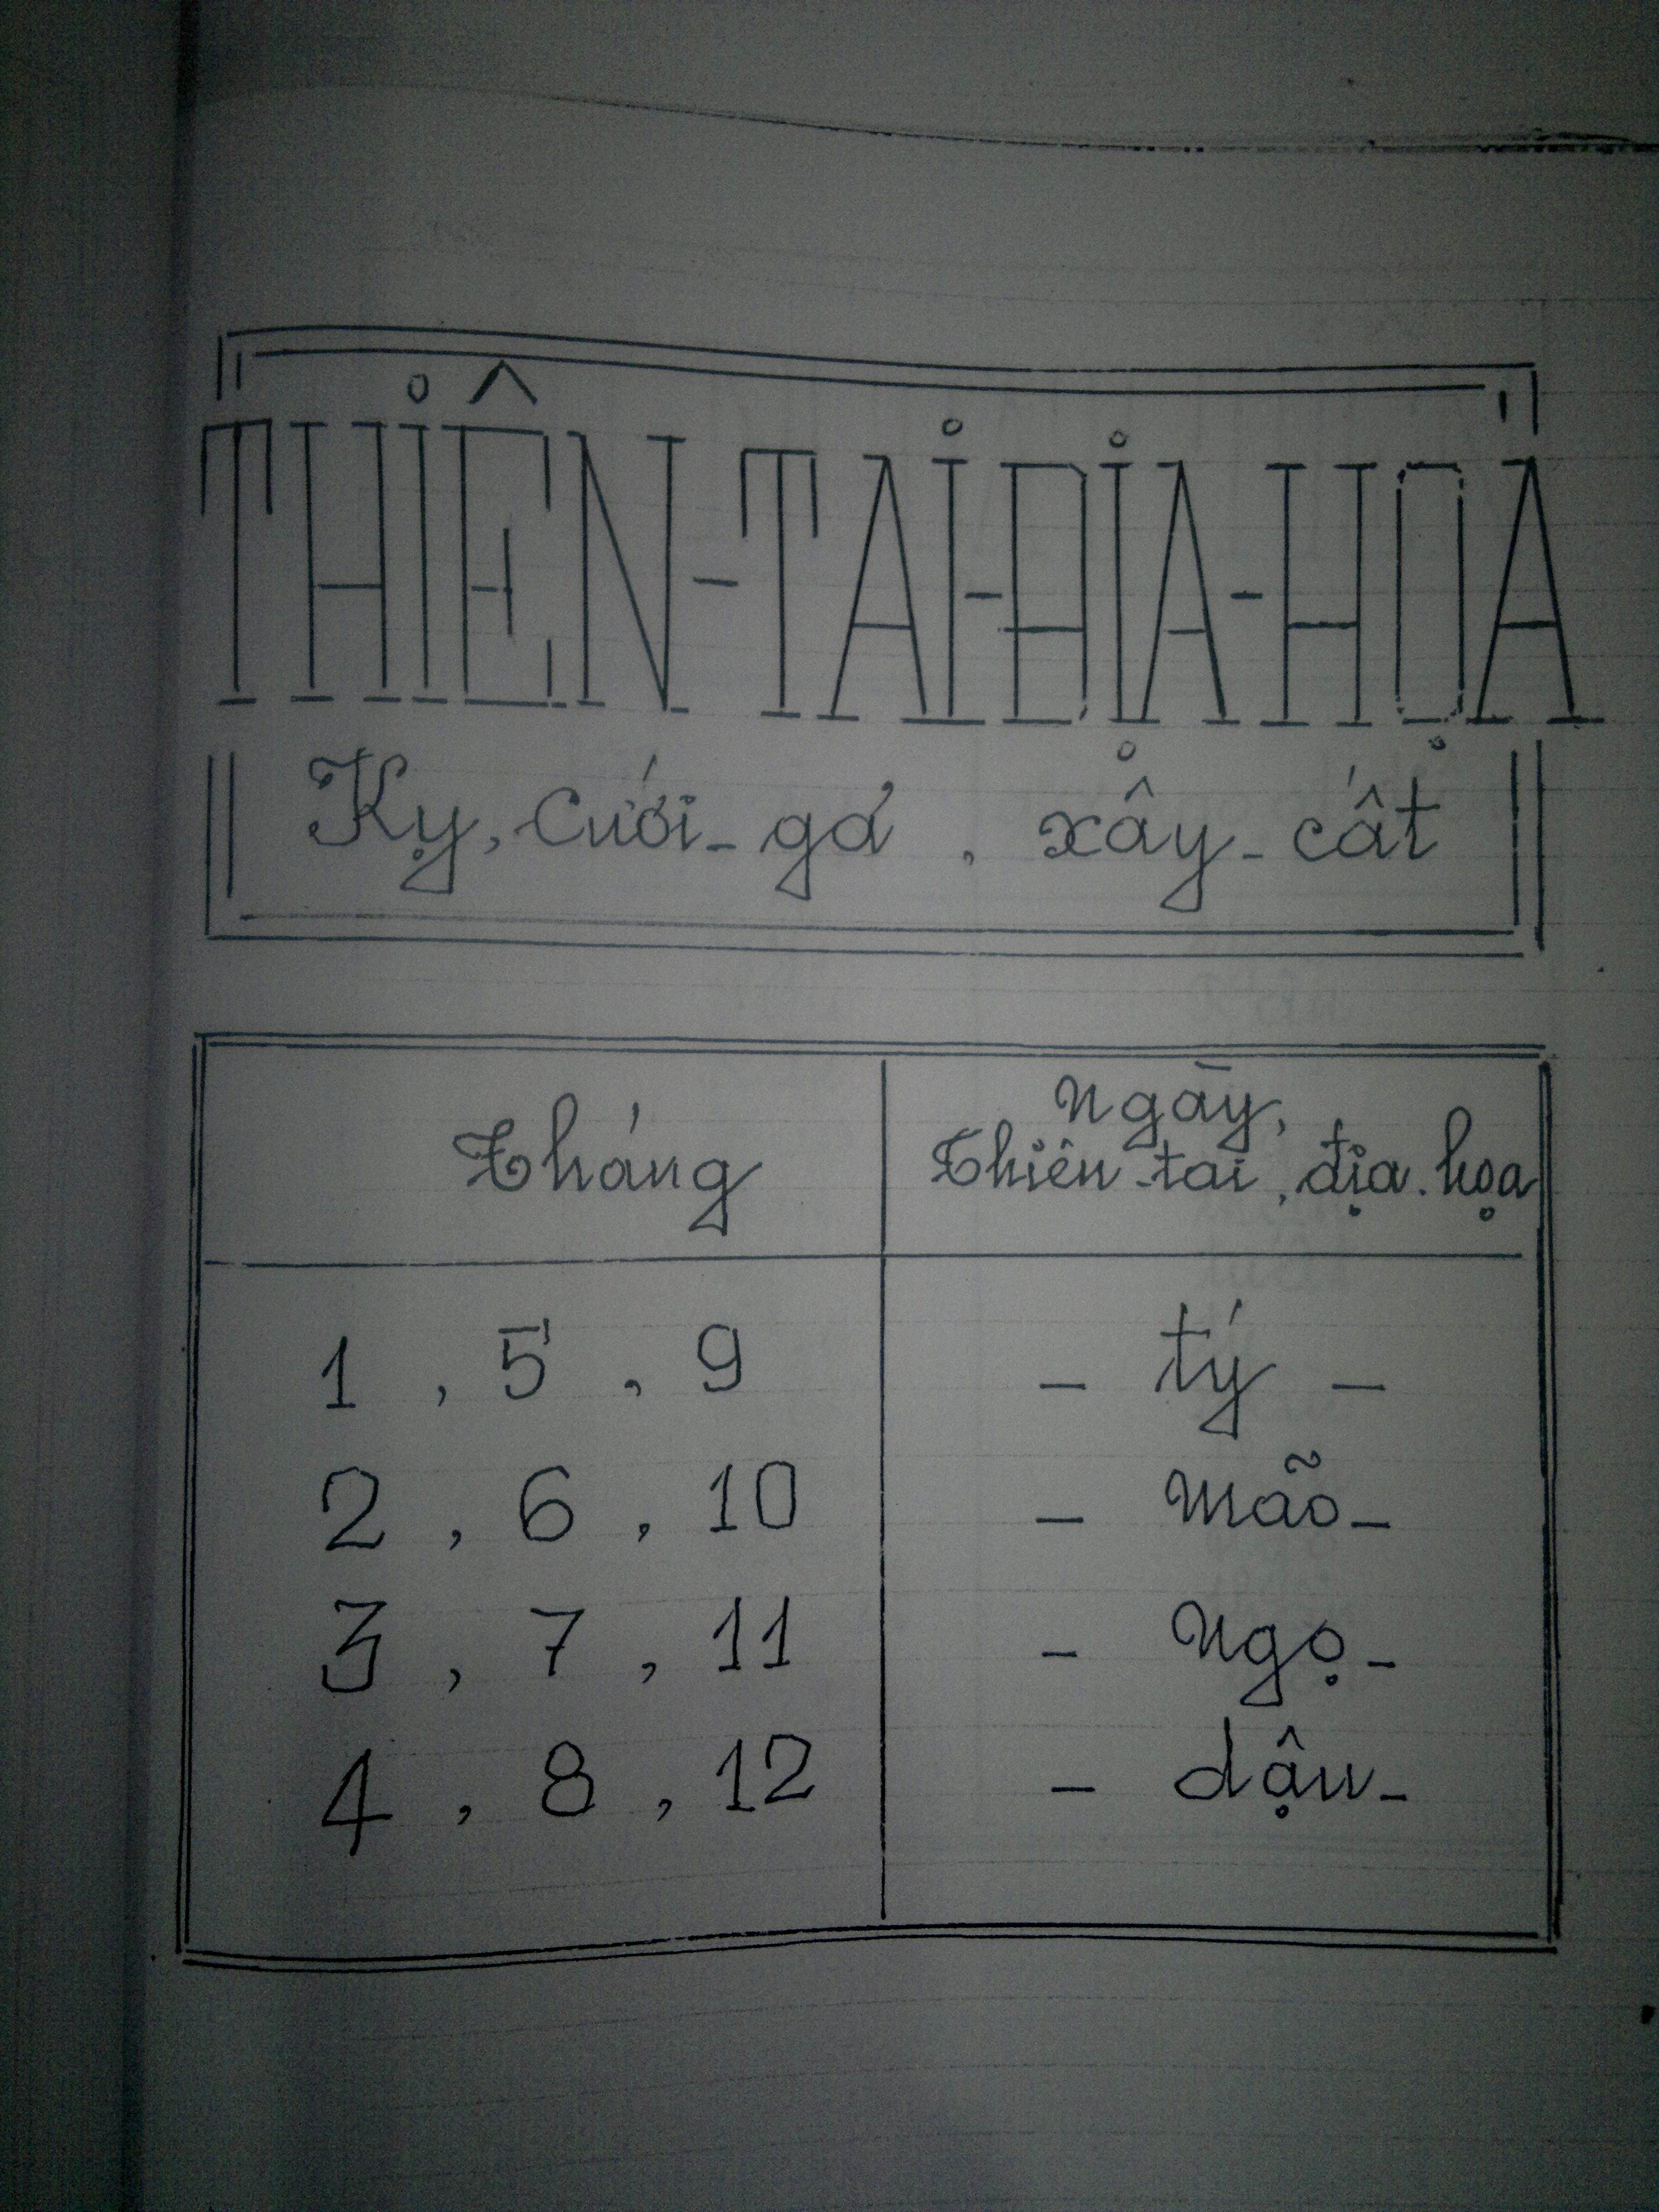 THIÊN-TAI-ĐỊA-HỌA
Kỵ, Cưới-gả, xây-cất
Tháng
Ngày,
Thiên-tai, địa.họa
1, 5, 9 - tý -
2, 6, 10 - Mão -
3, 7, 11 - Ngọ -
4, 8, 12 - dậu -